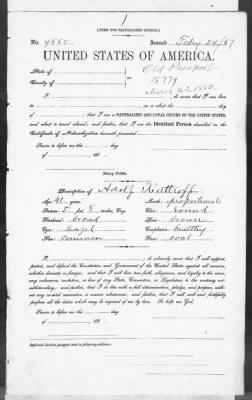 [FORM FOR NATURALIZED CITIZEN.]
No. 4555. Issued Feby 24/87
UNITED STATES OF AMERICA.
State of
County of
Old Passport
15779
March 22, 1880.
I, do swear that I was born
on or about the day of
that I am a NATURALIZED AND LOYAL CITIZEN OF THE UNITED STATES,
and about to travel abroad; and further, that I am the Identical Person described in the
Certificate of Naturalization herewith presented
Sworn to before me this day
of 188 .
Notary Public.
Description of Adolf Kuttroff
Age: 41 years. Mouth: proportionate
Stature: 5 feet 8 inches, Eng. Chin: round
Forehead: broad Hair: brown
Eyes: hazel Complexion: healthy
Nose: common Face: oval
I, do solemnly swear that I will support,
protect, and defend the Constitution and Government of the United States against all enemies,
whether domestic or foreign; and that I will bear true faith, allegiance, and loyalty to the same,
any ordinance, resolution, or law of any State, Convention, or Legislature to the contrary not-
withstanding; and further, that I do this with a full determination, pledge, and purpose, with-
out any mental reservation or evasion whatsoever; and further, that I will well and faithfully
perform all the duties which may be required of me by law. So help me God.
Sworn to before me this day
of 188 .
Applicant desires passport sent to following address: